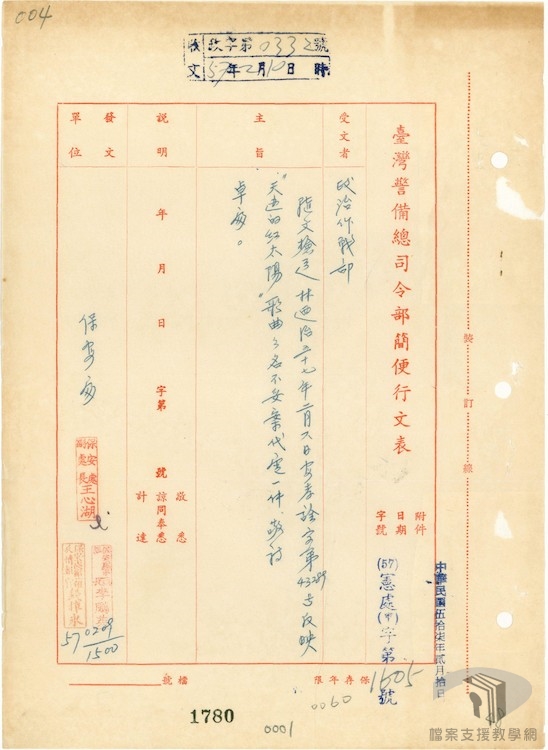 004
收文 政字第0332號
57年2月10日 時
臺灣警備總司令部簡便行文表
附件
日期
字號
(57)憲處(甲)字第1605號
中華民國五拾柒年貳月拾日
受文者
政治作戰部
主旨
隨文檢送林
年二月六日安
字第43289号反映
"天邊的紅太陽"歌曲之名不妥案代電一件,敬請
卓處。
說明
年 月 日 字第 號
敬悉
諒同奉悉
計達
發文單位
保安處
保安處
副處長 王心湖
57 0209/1500
裝訂線
保存年限
0060
檔號
1780
0001
檔案支援教學網